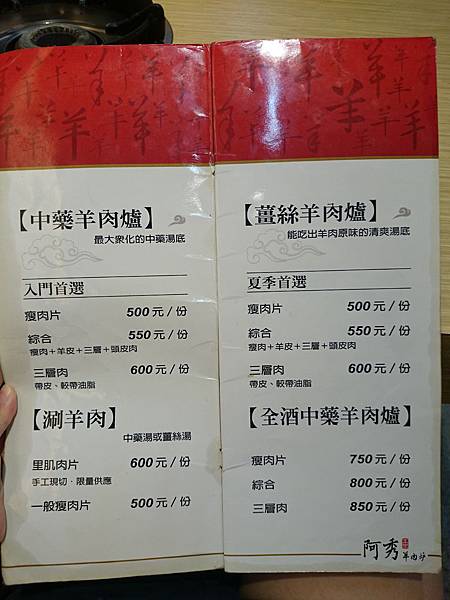 【中藥羊肉爐】
最大眾化的中藥湯底
入門首選
瘦肉片 500元/份
綜合 550元/份
瘦肉+羊皮+三層+頭皮肉
三層肉 600元/份
帶皮、較帶油脂
【涮羊肉】
中藥湯或薑絲湯
里肌肉片 600元/份
手工現切．限量供應
一般瘦肉片 500元/份
羊羊羊羊羊羊羊羊
【薑絲羊肉爐】
能吃出羊肉原味的清爽湯底
夏季首選
瘦肉片 500元/份
綜合 550元/份
瘦肉+羊皮+三層+頭皮肉
三層肉 600元/份
帶皮、較帶油脂
【全酒中藥羊肉爐】
瘦肉片 750元/份
綜合 800元/份
三層肉 850元/份
阿秀羊肉爐